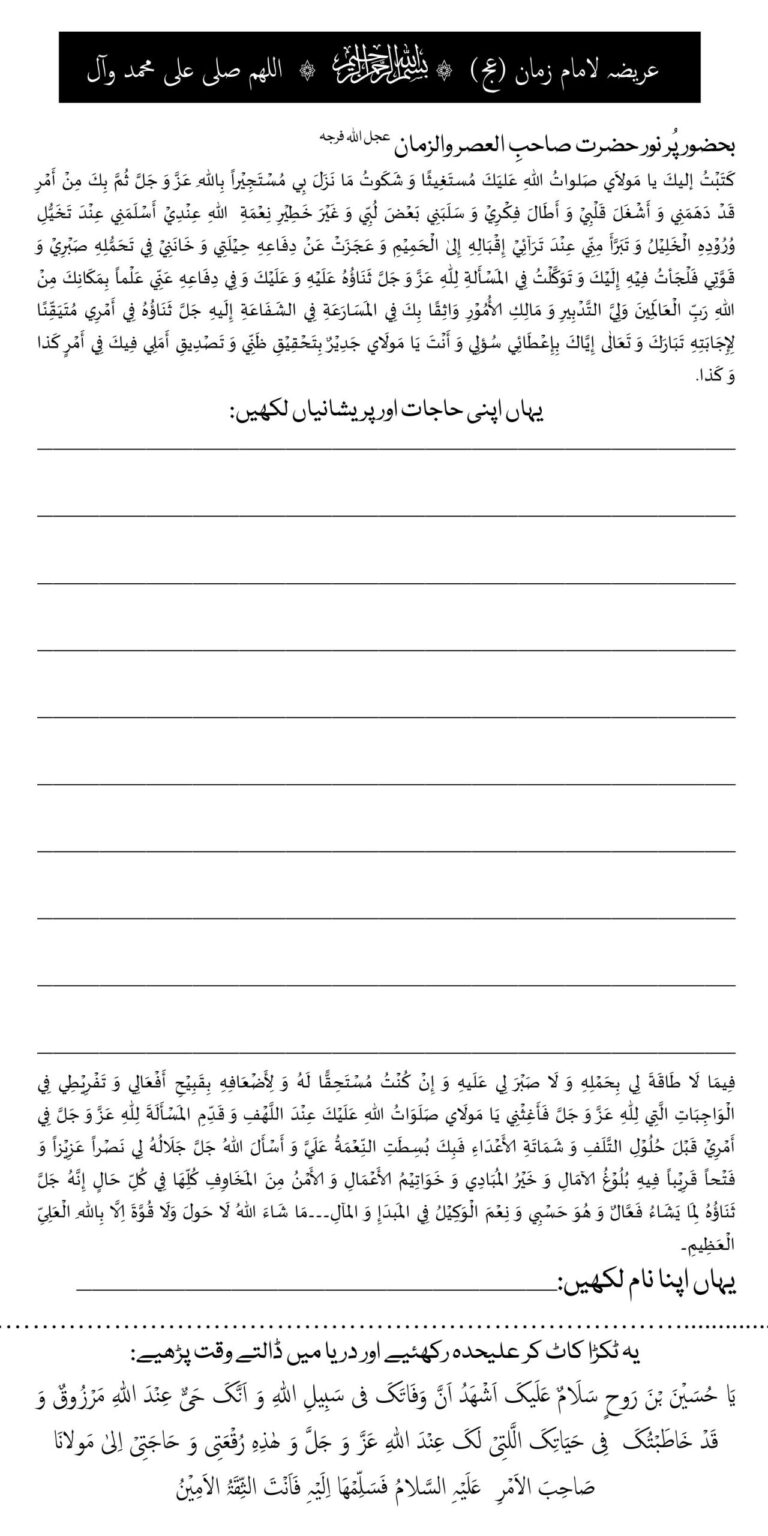 عریضہ لامام زمان (عج) ۞ بسم الله الرحمن الرحيم ۞ اللهم صلی علی محمد وآل
بحضور پُر نور حضرت صاحبِ العصر والزمان عجل الله فرجه
كَتَبْتُ إليكَ يا مَولآي صَلواتُ اللهِ عَليَكَ مُستَغِيثًا وَ شَكَوتُ مَا نَزَلَ بِي مُسْتَجِيْراً بِاللهِ عَزَّ وَ جَلَّ ثُمَّ بِكَ مِنْ أَمْرٍ
قَدْ دَهَمَنِي وَ أَشْغَلَ قَلْبِيْ وَ أَطَالَ فِكْرِيْ وَ سَلَبَنِي بَعْضَ لُبِّي وَ غَيَرَ خَطِيْرِ نِعْمَةِ اللهِ عِنْدِيْ أَسْلَمَنِي عِنْدَ تَخَيُّلِ
وُرُوْدِهِ الْخَلِيْلُ وَ تَبَرَّأَ مِنِّي عِنْدَ تَرَآئِيْ إِقْبَالِهِ إِلىٰ الْحَمِيْمِ وَ عَجَزَتْ عَنْ دِفَاعِهِ حِيْلَتِي وَ خَانَنِيْ فِي تَحَمُّلِهِ صَبْرِيْ وَ
قَوَّتِي فَلْجَأتُ فِيْهِ إِلَيْكَ وَ تَوَكَّلْتُ فِي المَسْأَلةِ لِلّٰهِ عَزَّ وَ جَلَّ ثَنَاؤُهُ عَلَيْهِ وَ عَلَيْكَ وَ فِي دِفَاعِهِ عَنِّي عَلْماً بِمَكَانِكَ مِنْ
اللهِ رَبِّ الْعَالَمِينَ وَلِيِّ التَّدْبِيرِ وَ مَالِكِ الأُمُوْرِ وَاثِقًا بِكَ فِي المَسَارَعَةِ فِي الشَفَاعَةِ إِلَيهِ جَلَّ ثَنَاؤُهُ فِي أَمْرِي مُتَيَقِّنًا
لِإجَابَتِهِ تَبَارَكَ وَ تَعَالٰى إِيَّاكَ بِإِعْطَائِي سُؤلِي وَ أَنْتَ يَا مَولَاي جَدِيْرٌ بِتَحْقِيْقِ ظَنِّي وَ تَصْدِيقِ أَمَلِي فِيكَ فِي أَمْرِ كَذا
وَ كَذا.
یہاں اپنی حاجات اور پریشانیاں لکھیں:
فِيمَا لَا طَاقَةَ لِي بِحَمْلِهِ وَ لَا صَبْرَ لِي عَلَيهِ وَ إِنْ كُنْتُ مُسْتَحِقًّا لَهُ وَ لِأَضْعَافِهِ بِقَبِيْحِ أَفْعَالِي وَ تَفْرِيْطِي فِي
الْوَاجِبَاتِ الَّتِي لِلّٰهِ عَزَّ وَ جَلَّ فَأَغِثْنِي يَا مَولَاي صَلَوَاتُ اللهِ عَلَيْكَ عِنْدَ اللَّهْفِ وَ قَدِّمِ المَسْأَلَةَ لِلّٰهِ عَزَّ وَ جَلَّ فِي
أَمْرِيْ قَبْلَ حُلُوْلِ التَّلَفِ وَ شَمَاتَةِ الأعْدَاءِ فَبِكَ بُسِطَتِ النِّعْمَةُ عَلَيَّ وَ أَسْأَلَ اللهُ جَلَّ جَلَالُهُ لِي نَصْراً عَزِيْزاً وَ
فَتْحاً قَرِيْباً فِيهِ بُلُوْغُ الآمَالِ وَ خَيْرُ المُبَادِي وَ خَوَاتِيْمُ الأَعْمَالِ وَ الأَمْنُ مِنَ المَخَاوِفِ كُلِّهَا فِي كُلِّ حَالٍ إِنَّهُ جَلَّ
ثَنَاؤُهُ لِمَا يَشَاءُ فَعَّالٌ وَ هُوَ حَسْبِي وَ نِعْمَ الْوَكِيْلُ فِي المَبدَإِ وَ المَآلِ۔۔۔مَا شَاءَ اللهُ لَا حَولَ وَلَا قُوَّةَ اِلَّا بِاللهِ الْعَلِيِّ
الْعَظِيمِ۔
یہاں اپنا نام لکھیں:
یہ ٹکڑا کاٹ کر علیحدہ رکھئیے اور دریا میں ڈالتے وقت پڑھیے:
یَا حُسَیْنَ بْنَ رَوحٍ سَلَامٌ عَلَیکَ اَشْهَدُ اَنَّ وَفَاتَکَ فی سَبِیلِ اللهِ وَ اَنَّکَ حَیٌّ عِنْدَ اللهِ مَرْزُوقٌ وَ
قَدْ خَاطَبْتُکَ فِی حَیَاتِکَ الَّتِیْ لَکَ عِنْدَ اللهِ عَزَّ وَ جَلَّ وَ هٰذِهِ رُقْعَتِی وَ حَاجَتِیْ اِلیٰ مَولانَا
صَاحِبَ الاَمْرِ عَلَیْہِ السَّلامُ فَسَلِّمْهَا اِلَیْہِ فَاَنْتَ الثِّقَةُ الاَمِیْنُ